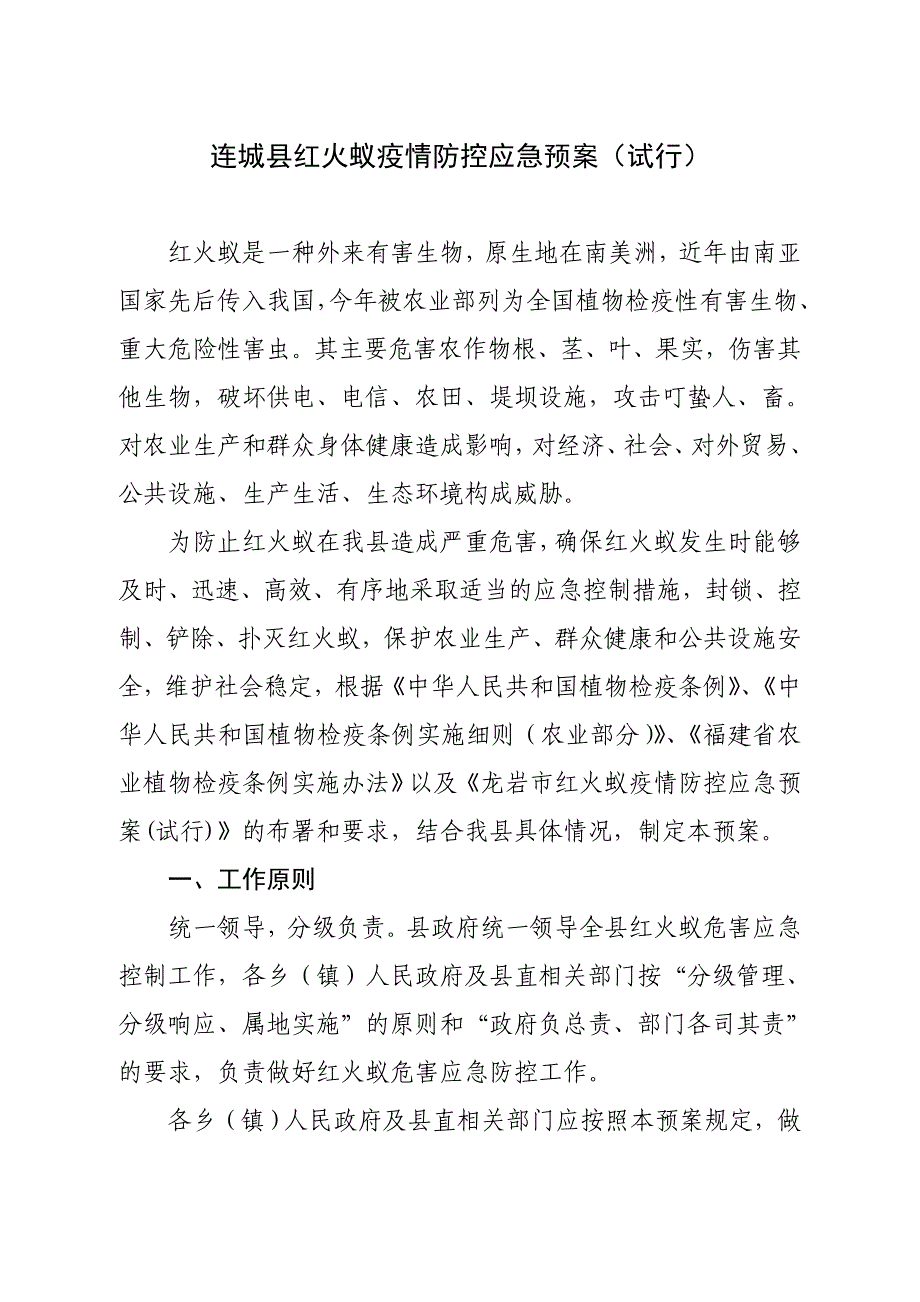 连城县红火蚁疫情防控应急预案（试行）
红火蚁是一种外来有害生物，原生地在南美洲，近年由南亚
国家先后传入我国，今年被农业部列为全国植物检疫性有害生物、
重大危险性害虫。其主要危害农作物根、茎、叶、果实，伤害其
他生物，破坏供电、电信、农田、堤坝设施，攻击叮蛰人、畜。
对农业生产和群众身体健康造成影响，对经济、社会、对外贸易、
公共设施、生产生活、生态环境构成威胁。
为防止红火蚁在我县造成严重危害，确保红火蚁发生时能够
及时、迅速、高效、有序地采取适当的应急控制措施，封锁、控
制、铲除、扑灭红火蚁，保护农业生产、群众健康和公共设施安
全，维护社会稳定，根据《中华人民共和国植物检疫条例》、《中
华人民共和国植物检疫条例实施细则（农业部分）》、《福建省农
业植物检疫条例实施办法》以及《龙岩市红火蚁疫情防控应急预
案(试行)》的布署和要求，结合我县具体情况，制定本预案。
一、工作原则
统一领导，分级负责。县政府统一领导全县红火蚁危害应急
控制工作，各乡（镇）人民政府及县直相关部门按“分级管理、
分级响应、属地实施”的原则和“政府负总责、部门各司其责”
的要求，负责做好红火蚁危害应急防控工作。
各乡（镇）人民政府及县直相关部门应按照本预案规定，做